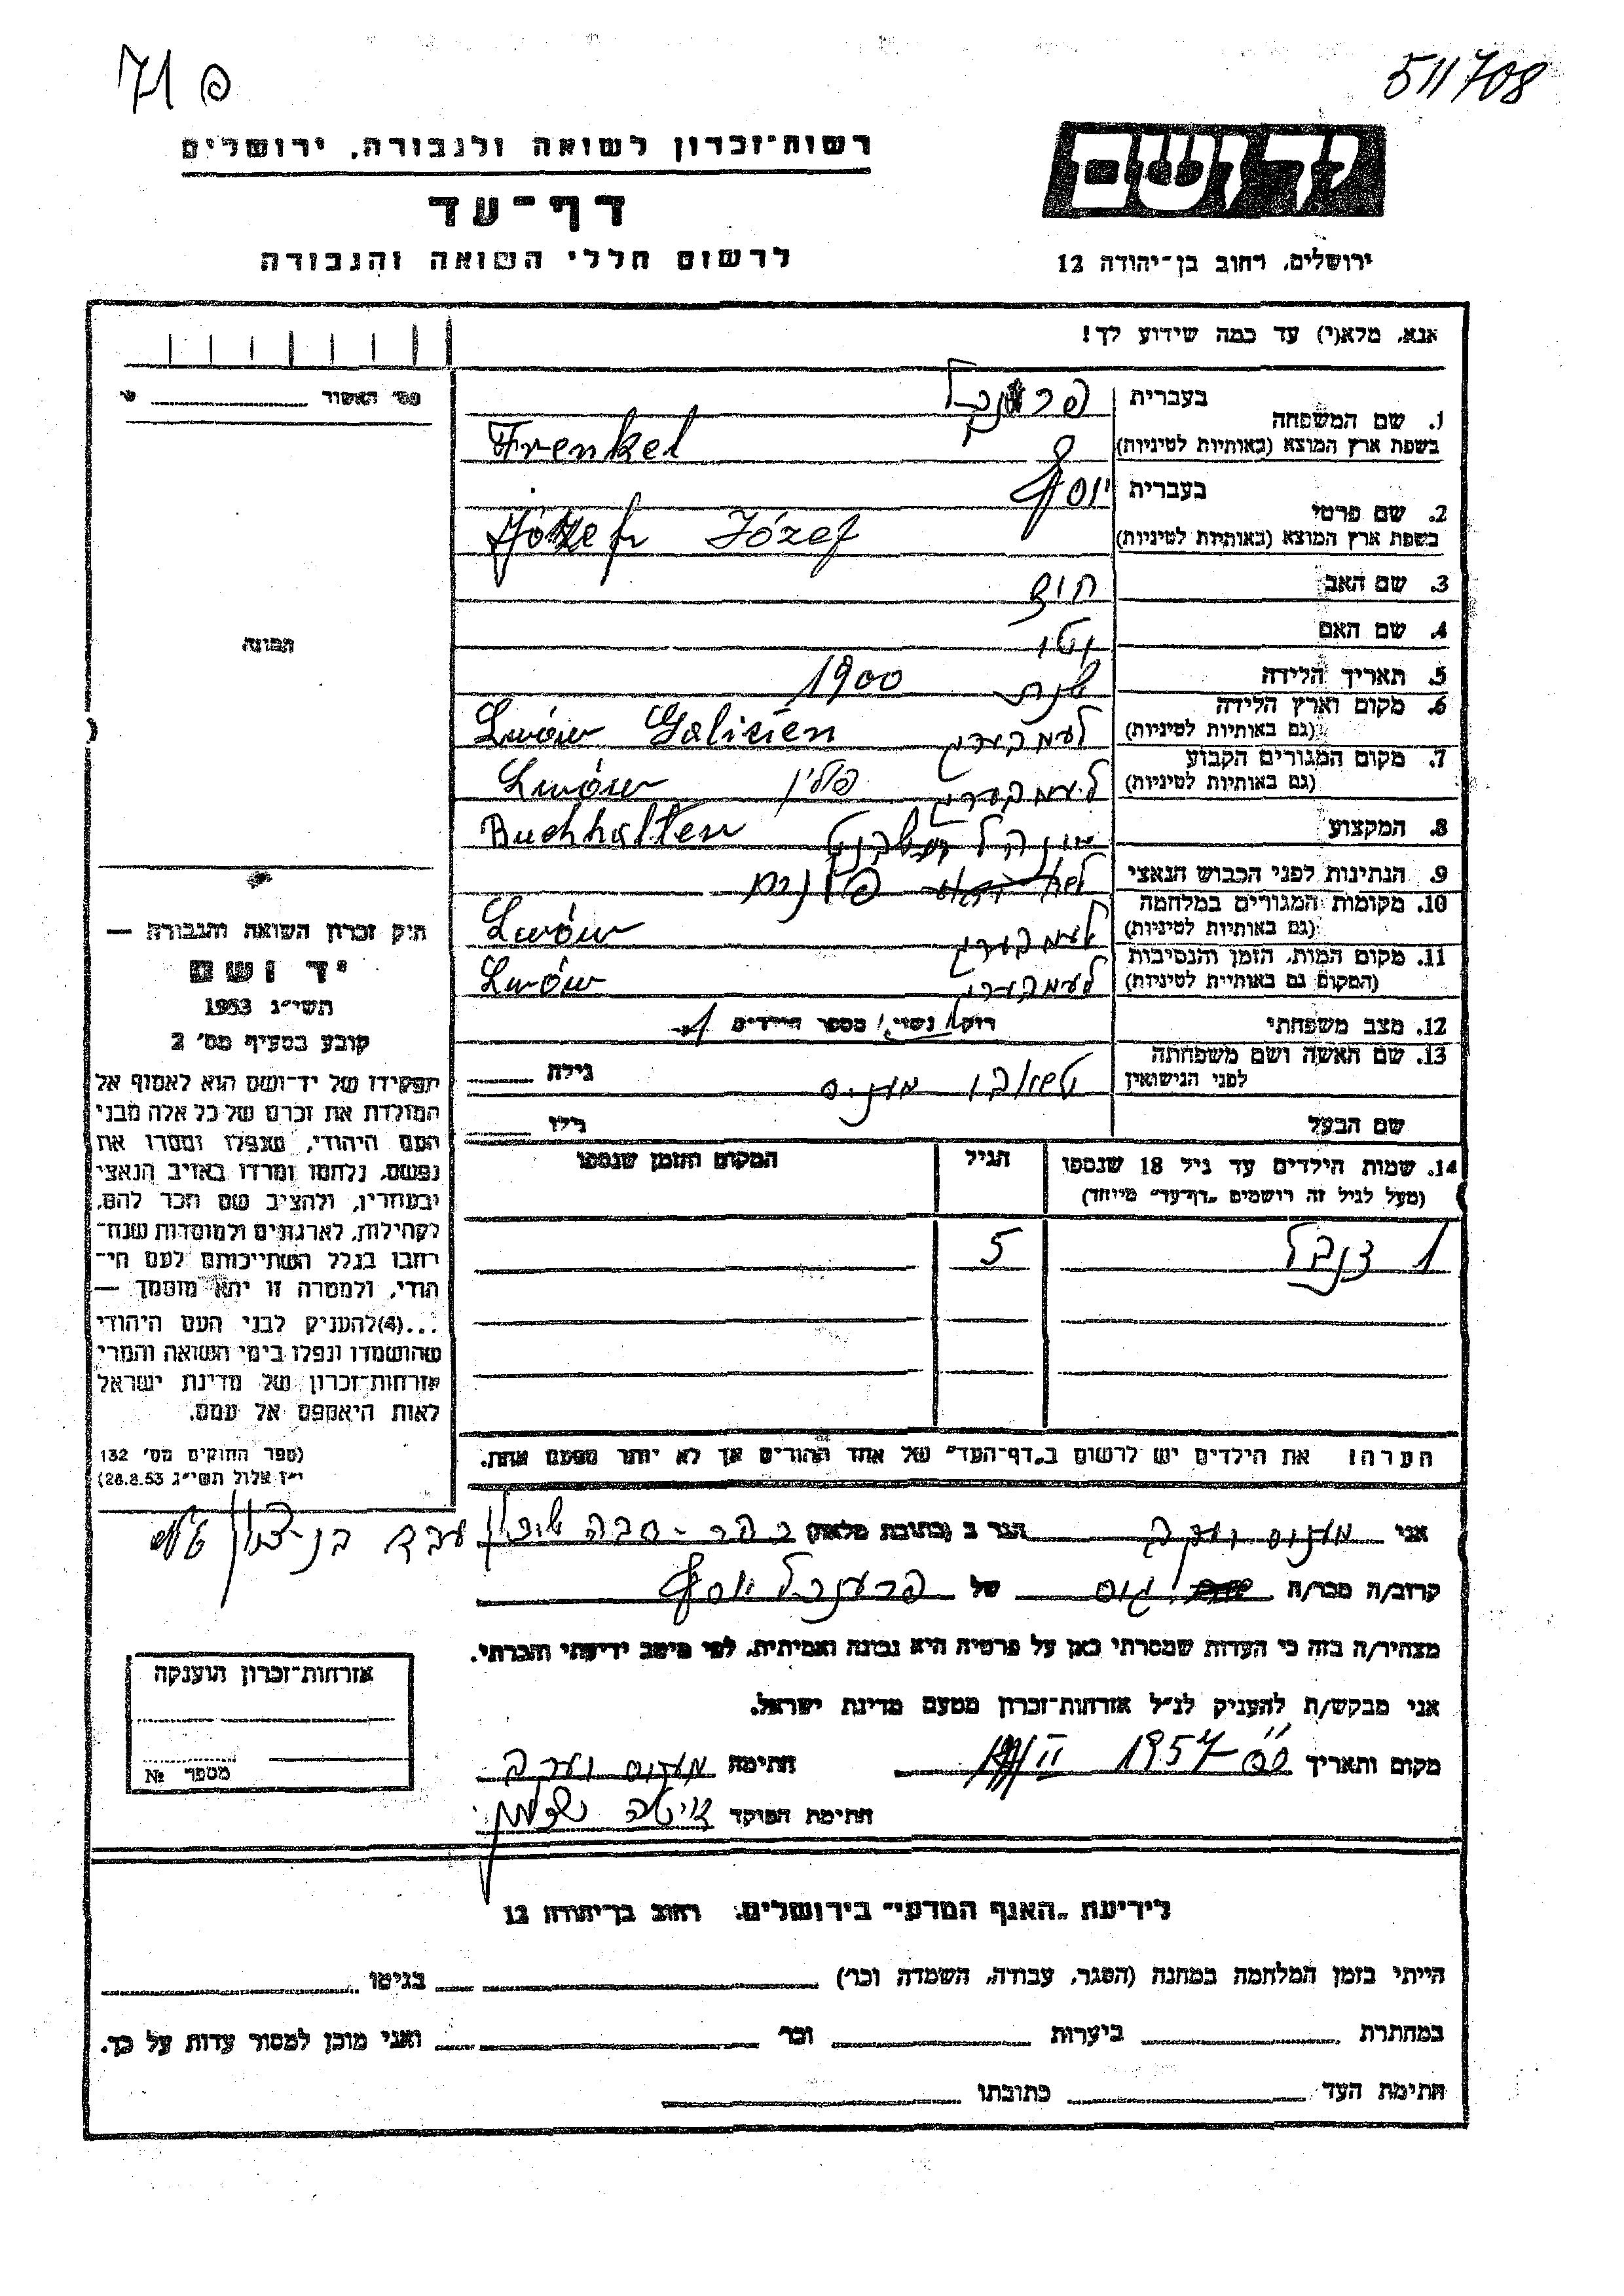 פ 71
511708
רשות־זכרון לשואה ולגבורה, ירושלים
דף־עד
לרשום חללי השואה והגבורה
ידושם
ירושלים, רחוב בן־יהודה 12
אנא, מלא(י) עד כמה שידוע לך!
מס' האשור
התמונה
1. שם המשפחה
בעברית פרענקל
בשפת ארץ המוצא (באותיות לטיניות) Frenkel
2. שם פרטי
בעברית יוסף
בשפת ארץ המוצא (באותיות לטיניות) Józef
3. שם האב
4. שם האם
5. תאריך הלידה שנת 1900
6. מקום וארץ הלידה
(גם באותיות לטיניות) לעמבערג Lwów Galizien
7. מקום המגורים הקבוע
(גם באותיות לטיניות) לעמבערג פולין Lwów
8. המקצוע Buchhalter
9. הנתינות לפני הכבוש הנאצי
10. מקומות המגורים במלחמה
(גם באותיות לטיניות) לעמבערג Lwów
11. מקום המות, הזמן והנסיבות
(המקום גם באותיות לטיניות) לעמבערג Lwów
12. מצב משפחתי רוק/ נשוי/ מספר הילדים 1
13. שם האשה ושם משפחתה
לפני הנישואין גילה
שם הבעל גילו
14. שמות הילדים עד גיל 18 שנספו
(מעל לגיל זה רושמים „דף־עד" מיוחד)
הגיל
המקום והזמן שנספו
1 5
הערה: את הילדים יש לרשום ב„דף־העד" של אחד ההורים אך לא יותר מפעם אחת.
חוק זכרון השואה והגבורה —
יד ושם
תשי״ג 1953
קובע בסעיף מס' 2
תפקידו של יד־ושם הוא לאסוף אל
המולדת את זכרם של כל אלה מבני
העם היהודי, שנפלו ומסרו את
נפשם, נלחמו ומרדו באויב הנאצי
ובעוזריו, ולהציב שם וזכר להם,
לקהילות, לארגונים ולמוסדות שנח־
רבו בגלל השתייכותם לעם הי־
הודי, ולמטרה זו יהא מוסמך —
...(4)להעניק לבני העם היהודי
שהושמדו ונפלו בימי השואה והמרי
אזרחות־זכרון של מדינת ישראל
לאות היאספם אל עמם.
(ספר החוקים מס' 132
י״ז אלול תשי״ג 28.8.53)
אני הגר ב (כתובת מלאה)
קרוב/ה מכר/ה גיס של פרענקל יוסף
מצהיר/ה בזה כי העדות שמסרתי כאן על פרטיה היא נכונה ואמיתית, לפי מיטב ידיעתי והכרתי.
אני מבקש/ת להעניק לנ״ל אזרחות־זכרון מטעם מדינת ישראל.
מקום ותאריך 1957 II חתימה
חתימת הפוקד
אזרחות־זכרון הוענקה
מספר №
לידיעת „האגף המדעי" בירושלים, רחוב בן־יהודה 12
הייתי בזמן המלחמה במחנה (הסגר, עבודה, השמדה וכו') בגיטו
במחתרת ביערות וכו' ואני מוכן למסור עדות על כך.
חתימת העד כתובתו